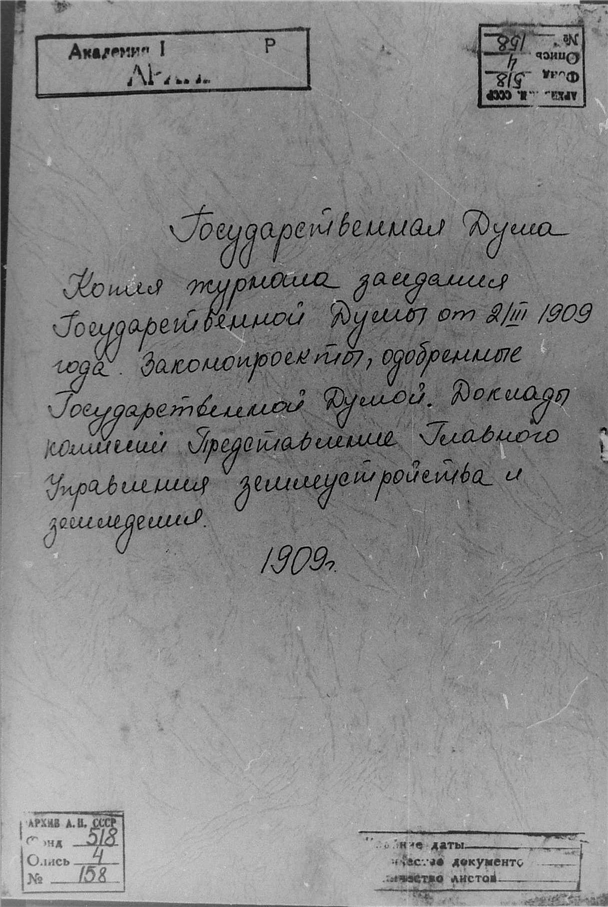 Академия
Р
АРХИВ
№ 158
Опись 4
Фонд 518
АРХИВ А. Н. СССР
Государственная Дума
Копия журнала заседания
Государственной Думы от 2/III 1909
года. Законопроекты, одобренные
Государственной Думой. Доклады
комиссий Представление Главного
Управления землеустройства и
земледелия.
1909г.
АРХИВ А. Н. СССР
Фонд 518
Опись 4
№ 158
даты
документо
листов